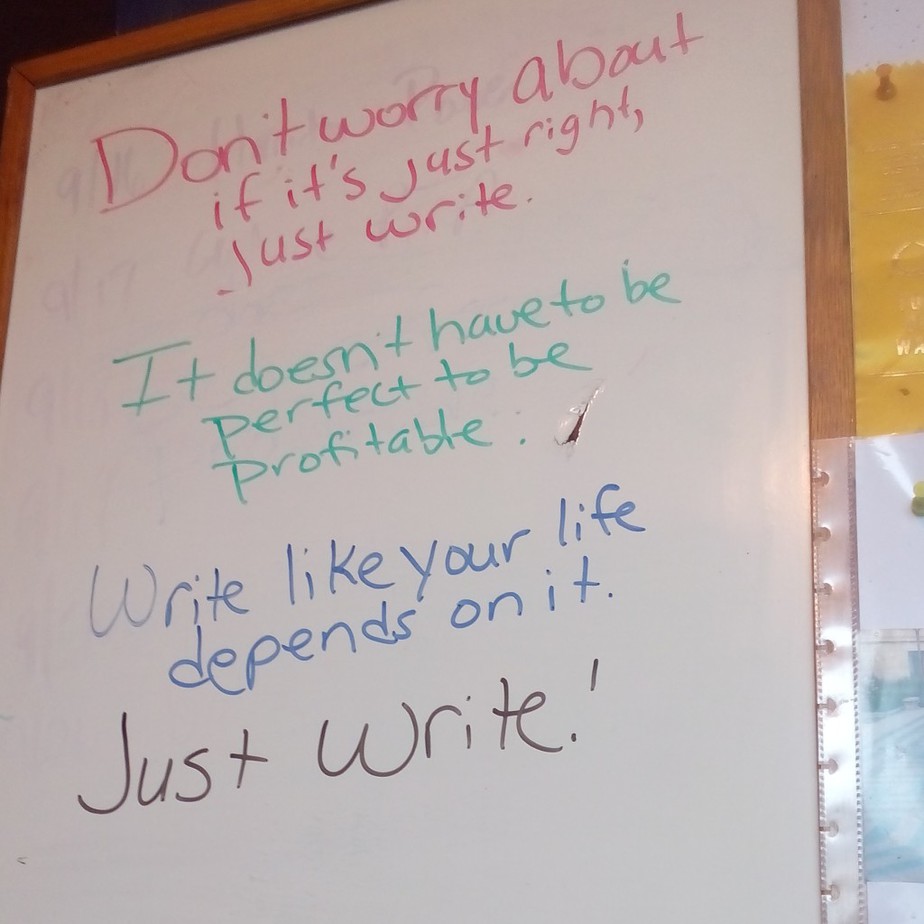 Don't worry about
if it's just right,
Just write.
It doesn't have to be
perfect to be
profitable.
Write like your life
depends on it.
Just Write!